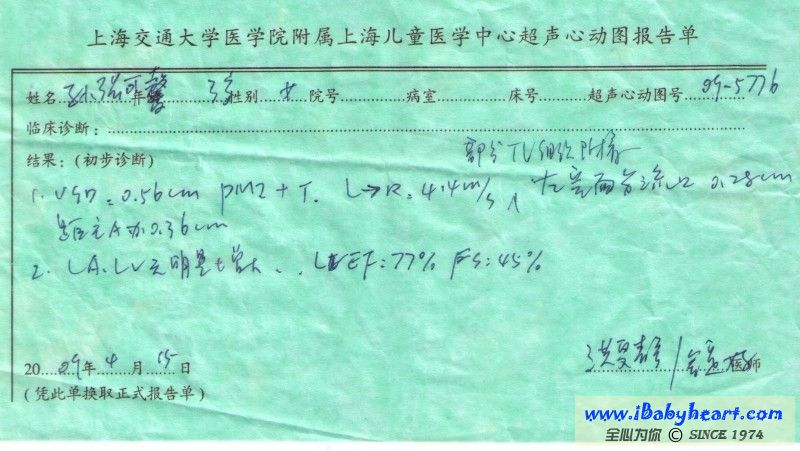 上海交通大学医学院附属上海儿童医学中心超声心动图报告单
姓名 孙 可馨 年龄 3岁 性别 女 院号 病室 床号 超声心动图号 09-5776
临床诊断：
结果：(初步诊断)
部分TV组织附着
1. VSD=0.56cm PM2+T. L→R=4.4m/s, 左室面分流口 0.28cm
距主A办0.36cm
2. LA.LV 无明显增大.. LVEF:77% FS:45%
2009年4月15日
医师
(凭此单换取正式报告单)
www.iBabyheart.com
全心为你 © SINCE 1974